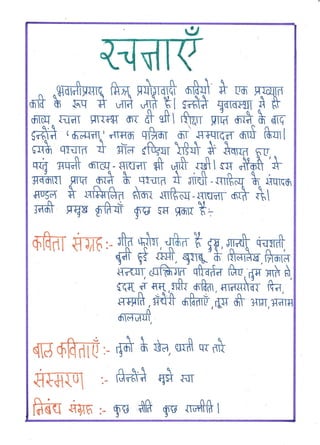 रचनाएँ
भवानीप्रसाद मिश्र प्रयोगवादी कवियों में एक प्रख्यात
कवि के रूप में जाने जाते हैं। इन्होंने युवावस्था से ही
काव्य रचना प्रारम्भ कर दी थी। शिक्षा प्राप्त करने के बाद
इन्होंने 'कल्पना' नामक पत्रिका का सम्पादन कार्य किया।
इसके पश्चात ये ऑल इण्डिया रेडियो में सेवारत हुए,
परंतु अपनी काव्य-साधना भी जारी रखी। इस नौकरी से
अवकाश प्राप्त करने के पश्चात ये गांधी-साहित्य के संपादक
मण्डल में सम्मिलित होकर साहित्य-साधना करते रहे।
उनकी प्रमुख कृतियाँ कुछ इस प्रकार हैं:-
कविता संग्रह:- गीत फरोश, चकित है दुख, गान्धी पंचशती,
बुनी हुई रस्सी, खुशबू के शिलालेख, त्रिकाल
सन्ध्या, व्यक्तिगत, परिवर्तन जिए, तुम आते हो,
इदम् न मम्, शरीर कविता, मानसरोवर दिन,
सम्प्रति, अँधेरी कविताएँ, तूस की आग, अनाम
कालजयी,
बाल कविताएँ:- तुकों के खेल, धरती पर तारे
संस्मरण :- जिन्होंने मुझे रचा
निबंध संग्रह:- कुछ नीति कुछ राजनीति।